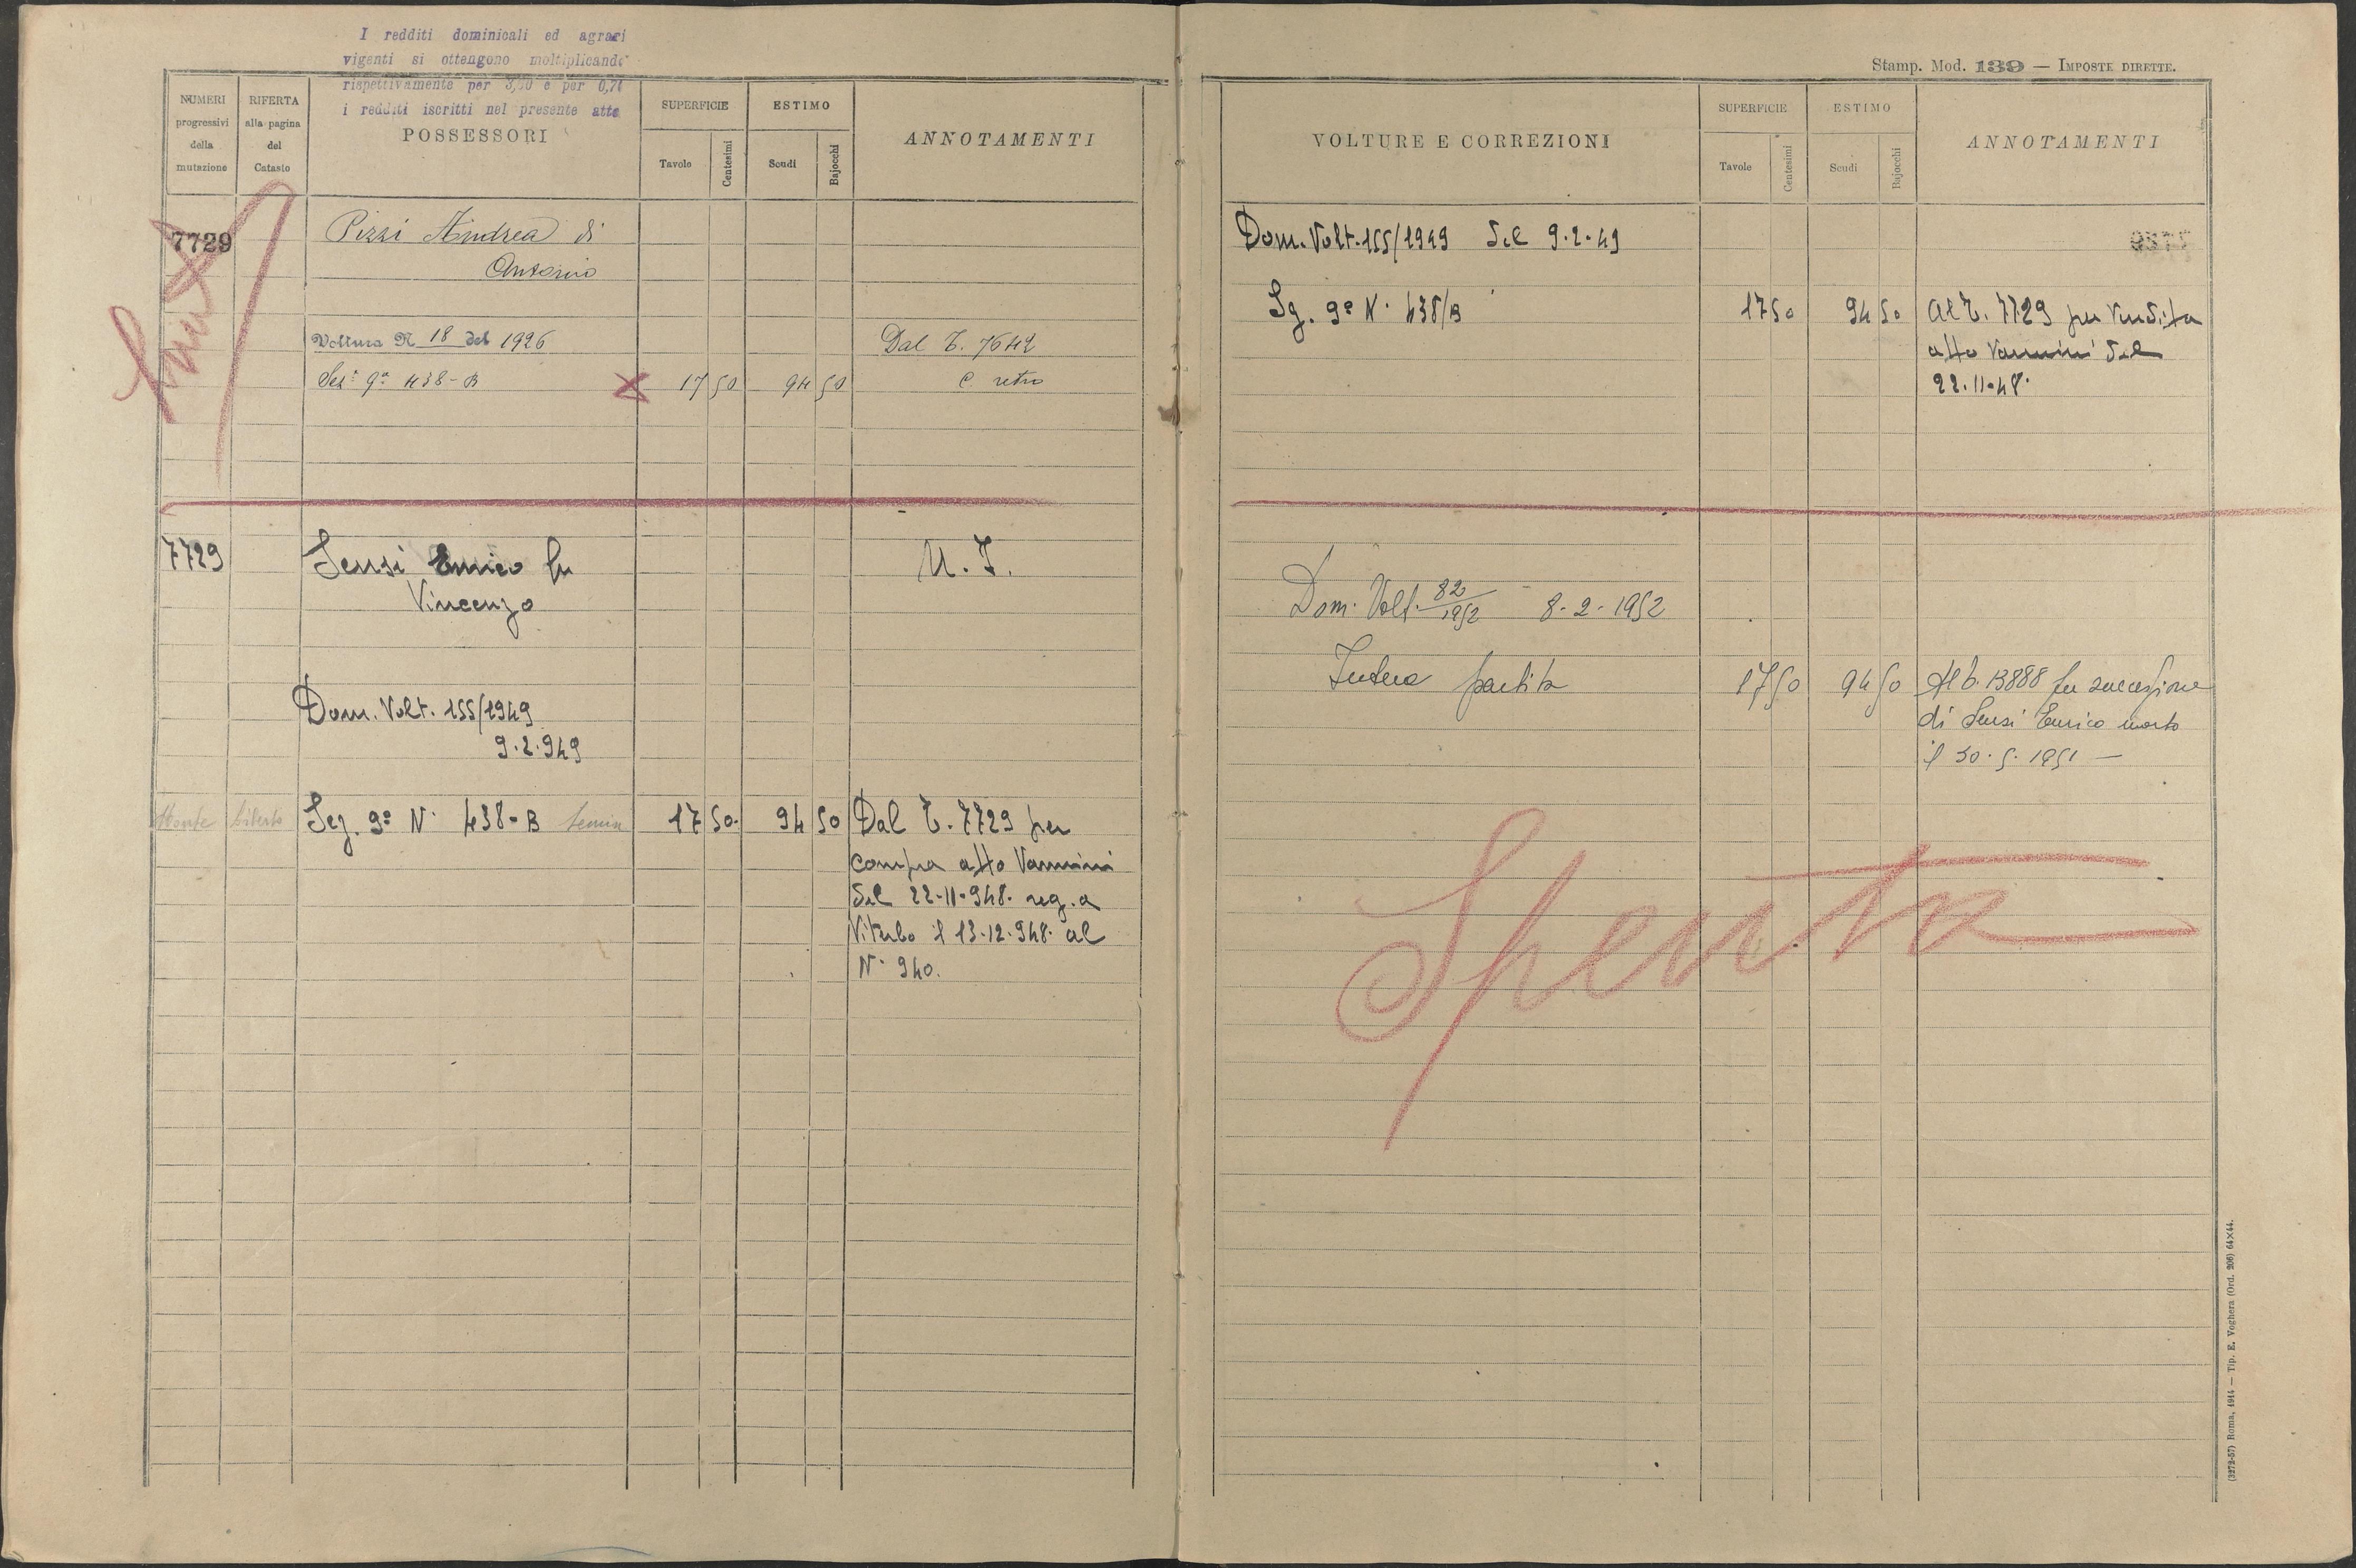 I redditi dominicali ed agrari
vigenti si ottengono moltiplicando
rispettivamente per 3,00 e per 0,74
i redditi iscritti nel presente atto
NUMERI
progressivi
della
mutazione
RIFERTA
alla pagina
del
Catasto
POSSESSORI
SUPERFICIE
Tavole
Centesimi
ESTIMO
Scudi
Bajocchi
ANNOTAMENTI
7729
Pizzi Andrea di
Antonio
Voltura N 18 del 1926
Dal T. 7642
Sez: 9ª 438-B 17 50 94 50 e retro
7729 Sensi Enrico fu M. I.
Vincenzo
Dom. Volt. 155/1949
9.2.949
Monte Sez. 9ª N. 438-B 17 50 94 50 Dal T. 7729 per
compra atto Vannini
del 22-11-948. reg. a
Viterbo il 13-12-948. al
N. 940.
Stamp. Mod. 139 — IMPOSTE DIRETTE.
VOLTURE E CORREZIONI
SUPERFICIE
Tavole
Centesimi
ESTIMO
Scudi
Bajocchi
ANNOTAMENTI
Dom. Volt. 155/1949 del 9.2.49
Sz. 9ª N. 438/B 17 50 94 50 Al T. 7729 per vendita
atto Vannini del
22.11.48.
Dom. Volt. 82/1952 8-2-1952
Intera partita 17 50 94 50 Al T. 13888 per successione
di Sensi Enrico morto
il 30.5.1951 —
Spenta
(3272-57) Roma, 1914 — Tip. E. Voghera (Ord. 206) 64×44.